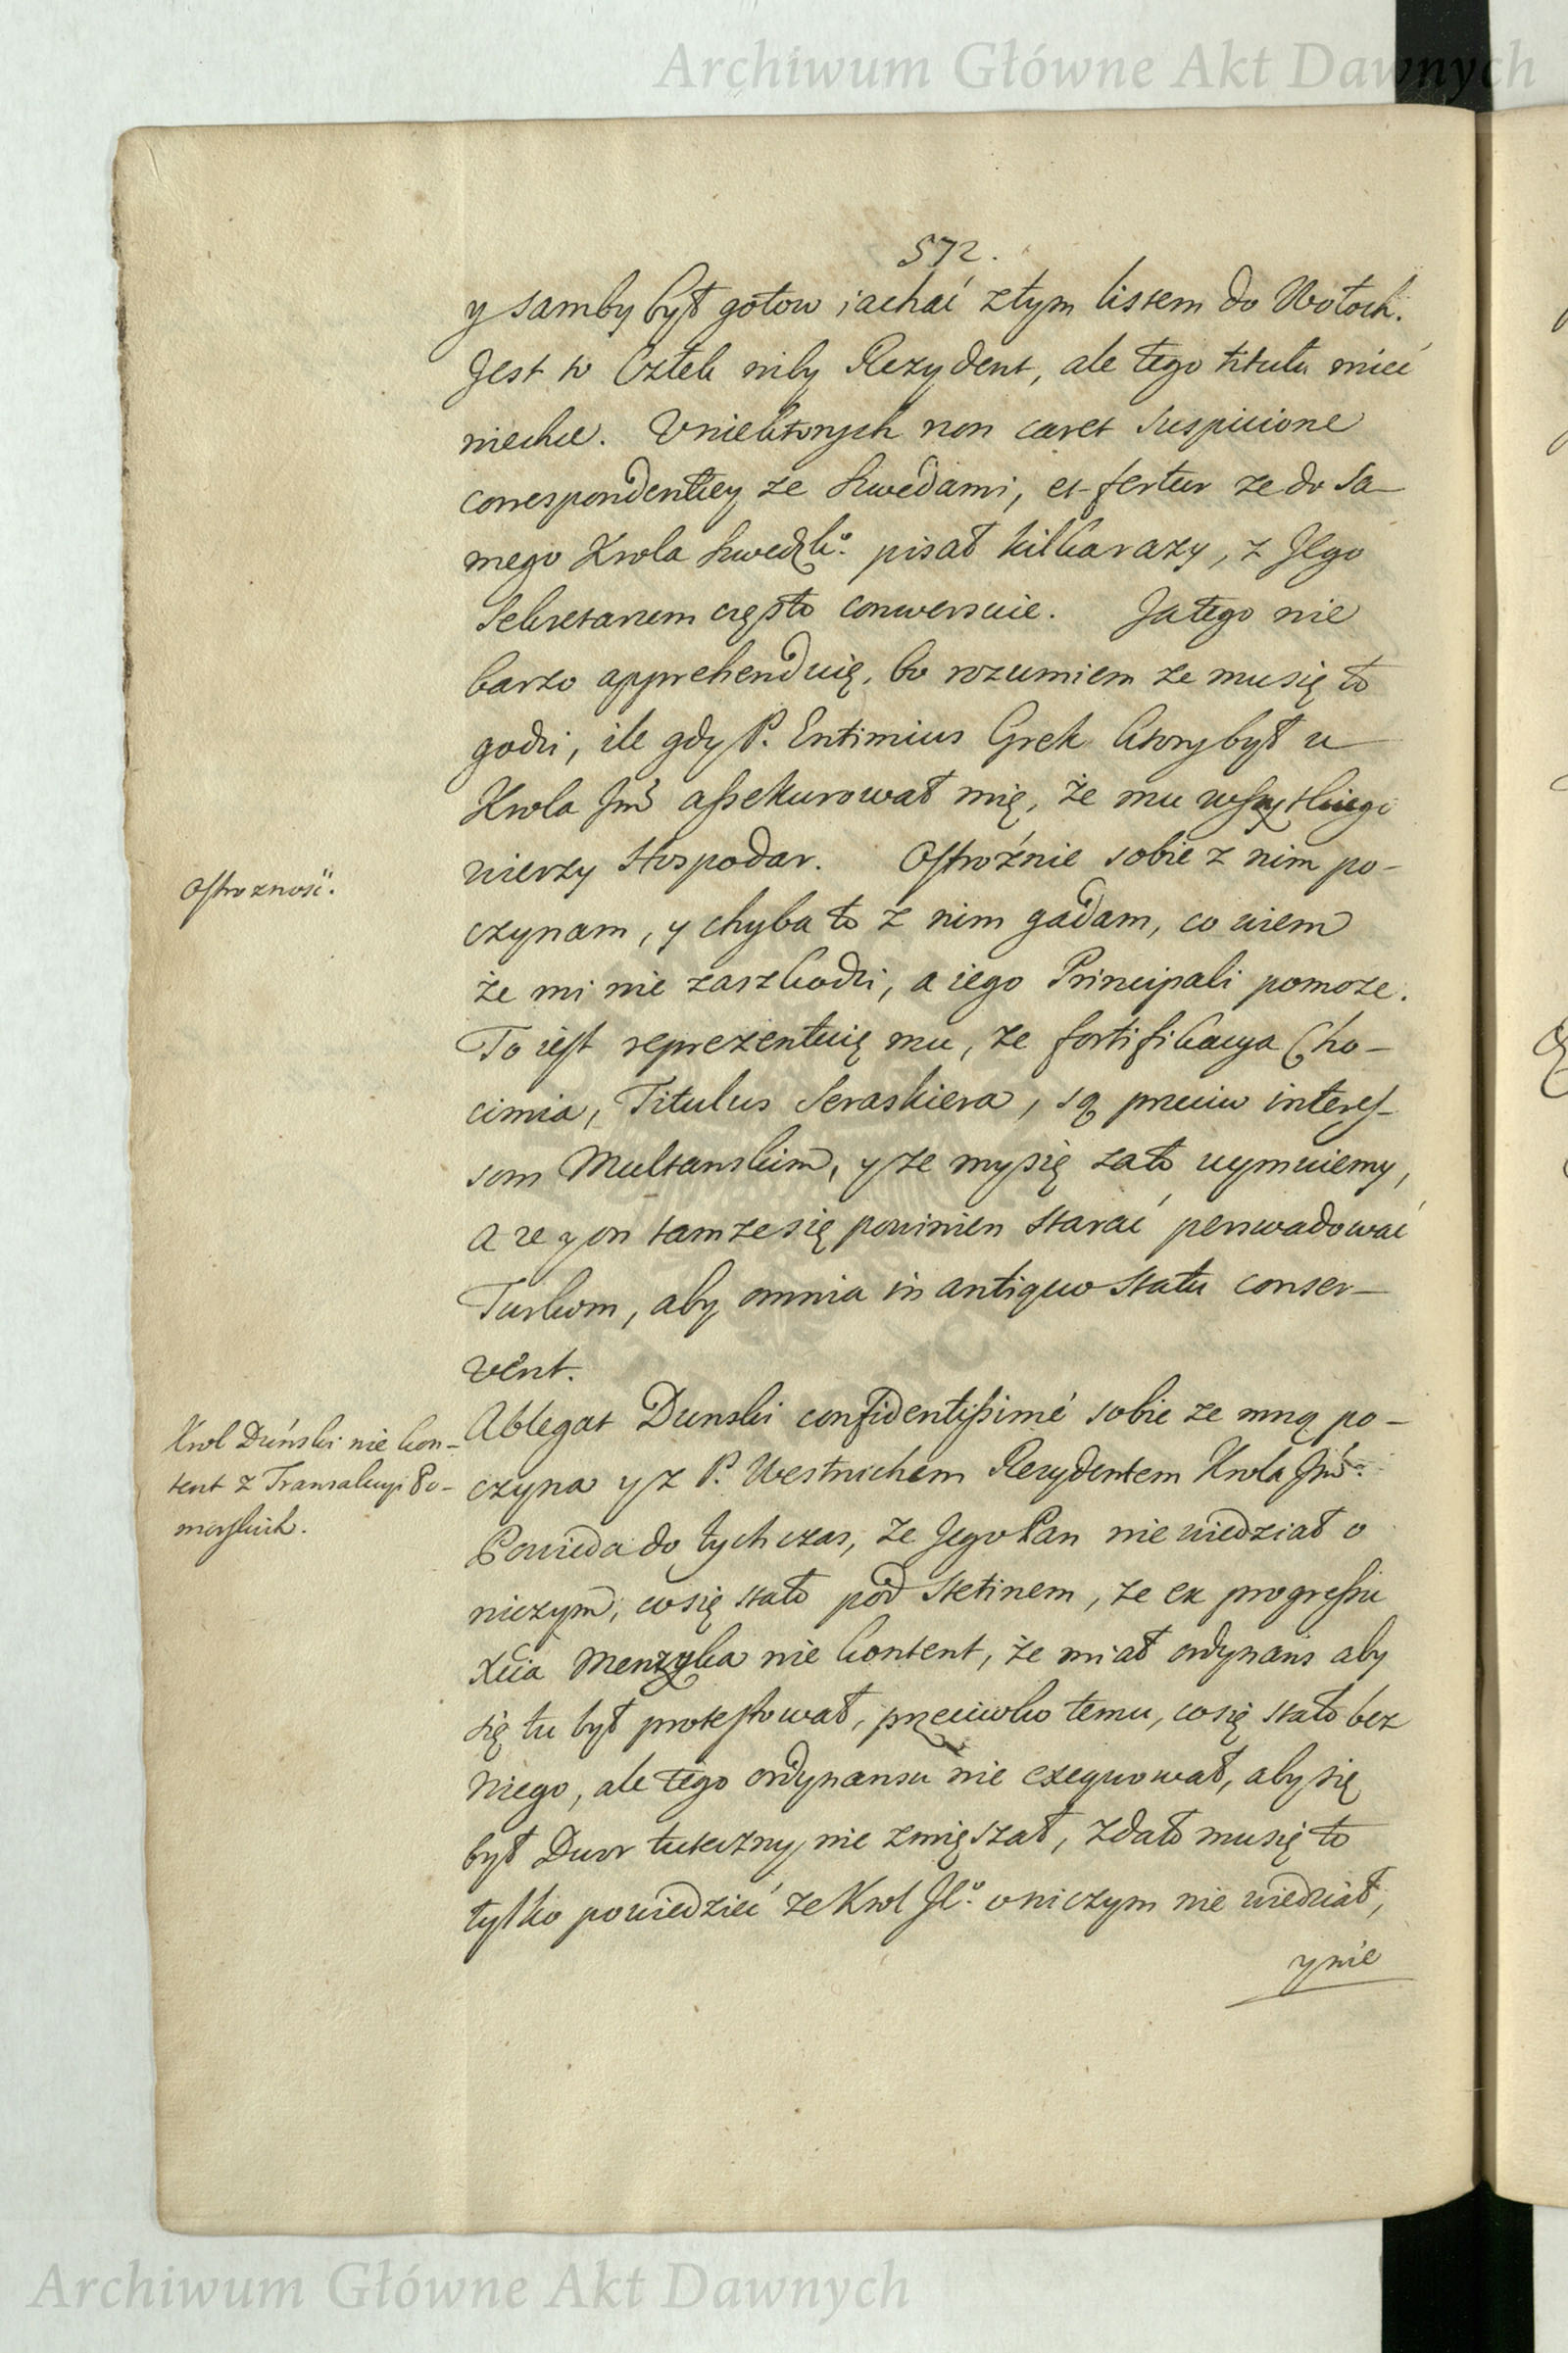 Archiwum Główne Akt Dawnych
572.
y samby był gotow iachać z tym listem do Wołoch.
Jest to Człek niby Rezydent, ale tego titułu mieć
niechce. U niektorych non caret suspicione
correspondentiey ze Szwedami, et fertur ze do Sa-
mego Krola Szwedzk°. pisał kilka razy, z Jego
Sekretarzem często conwersuie. Ja tego nie
barzo apprehenduię, bo rozumiem ze mu się to
godzi, ile gdy P. Entimius Grek ktory był u
Krola Jmś assekurował mię, że mu wszystkiego
wierzy Hospodar. Ostroźnie sobie z nim po-
Ostroznosć.
czynam, y chyba to z nim gadam, co wiem
że mi nie zaszkodzi, a iego Principali pomoze.
To iest reprezentuię mu, ze fortifikacya Cho-
cimia, Titulus Seraskiera, są przeciw interes-
som Multanskim, y ze my się za to uymuiemy,
a ze y on tamze się powinien starać perswadować
Turkom, aby omnia in antiquo statu conser-
vent.
Ablegat Dunski confidentissimé sobie ze mną po-
Krol Duński nie kon-
tent z Transakcyi Po-
morskich.
czyna y z P. Westnichem Rezydentem Krola Jmś.
Powieda do tych czas, ze Jego Pan nie wiedział o
niczym, co się stało pod Stetinem, ze ex progressu
Xcia Menzyka nie kontent, że miał ordynans aby
się tu był protestował, przeciwko temu, co się stało bez
niego, ale tego ordynansu nie exequował, aby się
był Dwor tuteczny nie zmięszał, zdało mu się to
tylko powiedzieć ze Krol J°. o niczym nie wiedział,
y nie
Archiwum Główne Akt Dawnych